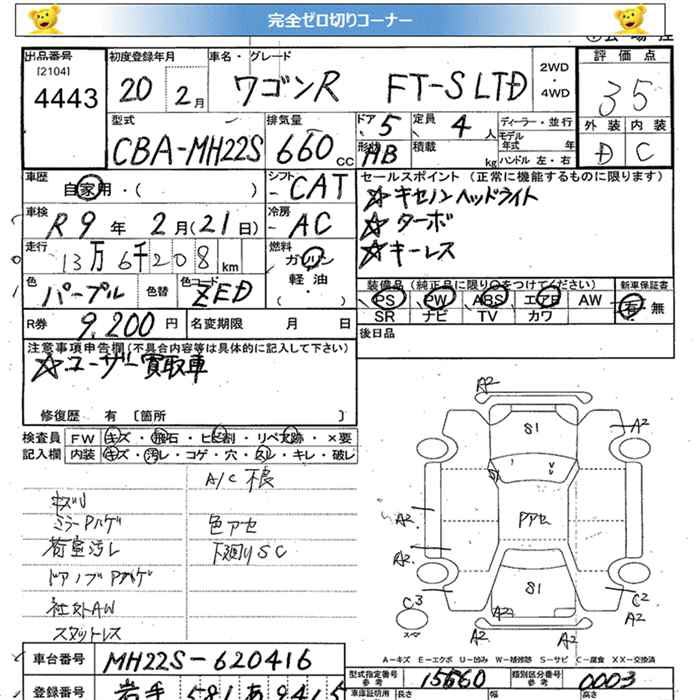 完全ゼロ切りコーナー
出品番号 初度登録年月 車名・グレード 評価点
[2104]
4443 20 2月 ワゴンR FT-S LTD 2WD ・4WD 35
型式 排気量 ドア 5 定員 4人 ディーラー・並行 外装 内装
CBA-MH22S 660 CC 形状 HB 積載 kg モデル年式 年 ハンドル 左・右 D C
車歴 自家用・( ) シフト - CAT セールスポイント (正常に機能するものに限ります)
☆キセノンヘッドライト
車検 R9年 2月(21日) 冷房 - AC ☆ターボ
☆キーレス
走行 13万6千208 km 燃料 ガソリン
軽油
・( )
色 パープル 色替 色コード ZED
装備品(純正品に限り○をつけてください) 新車保証書
PS PW ABS エアB AW 有・無
SR ナビ TV カワ
R券 9,200円 名変期限 月 日 後日品
注意事項申告欄(不具合内容等は具体的に記入して下さい)
☆ユーザー買取車
修復歴 有 〔箇所 〕
検査員 FW キズ・飛石・ヒビ割・リペア跡・×要
記入欄 内装 キズ・汚レ・コゲ・穴・スレ・キレ・破レ
A/C 不良
キズU
ミラーPハゲ 色アセ
荷室汚レ 下廻りSC
ドアノブPハゲ
社外AW
スタットレス
A2
S1
A2
A2
Pアセ
A2
S1
C3
A2
C2
A2
A2
A2
A-キズ E-エクボ U-凹み W-補修跡 S-サビ C-腐食 XX-交換済
車台番号 MH22S-620416 型式指定番号 参考 15660 類別区分番号 参考 0003
登録番号 岩手 581 あ 9415 車庫証明用 参考 長さ 幅 高さ